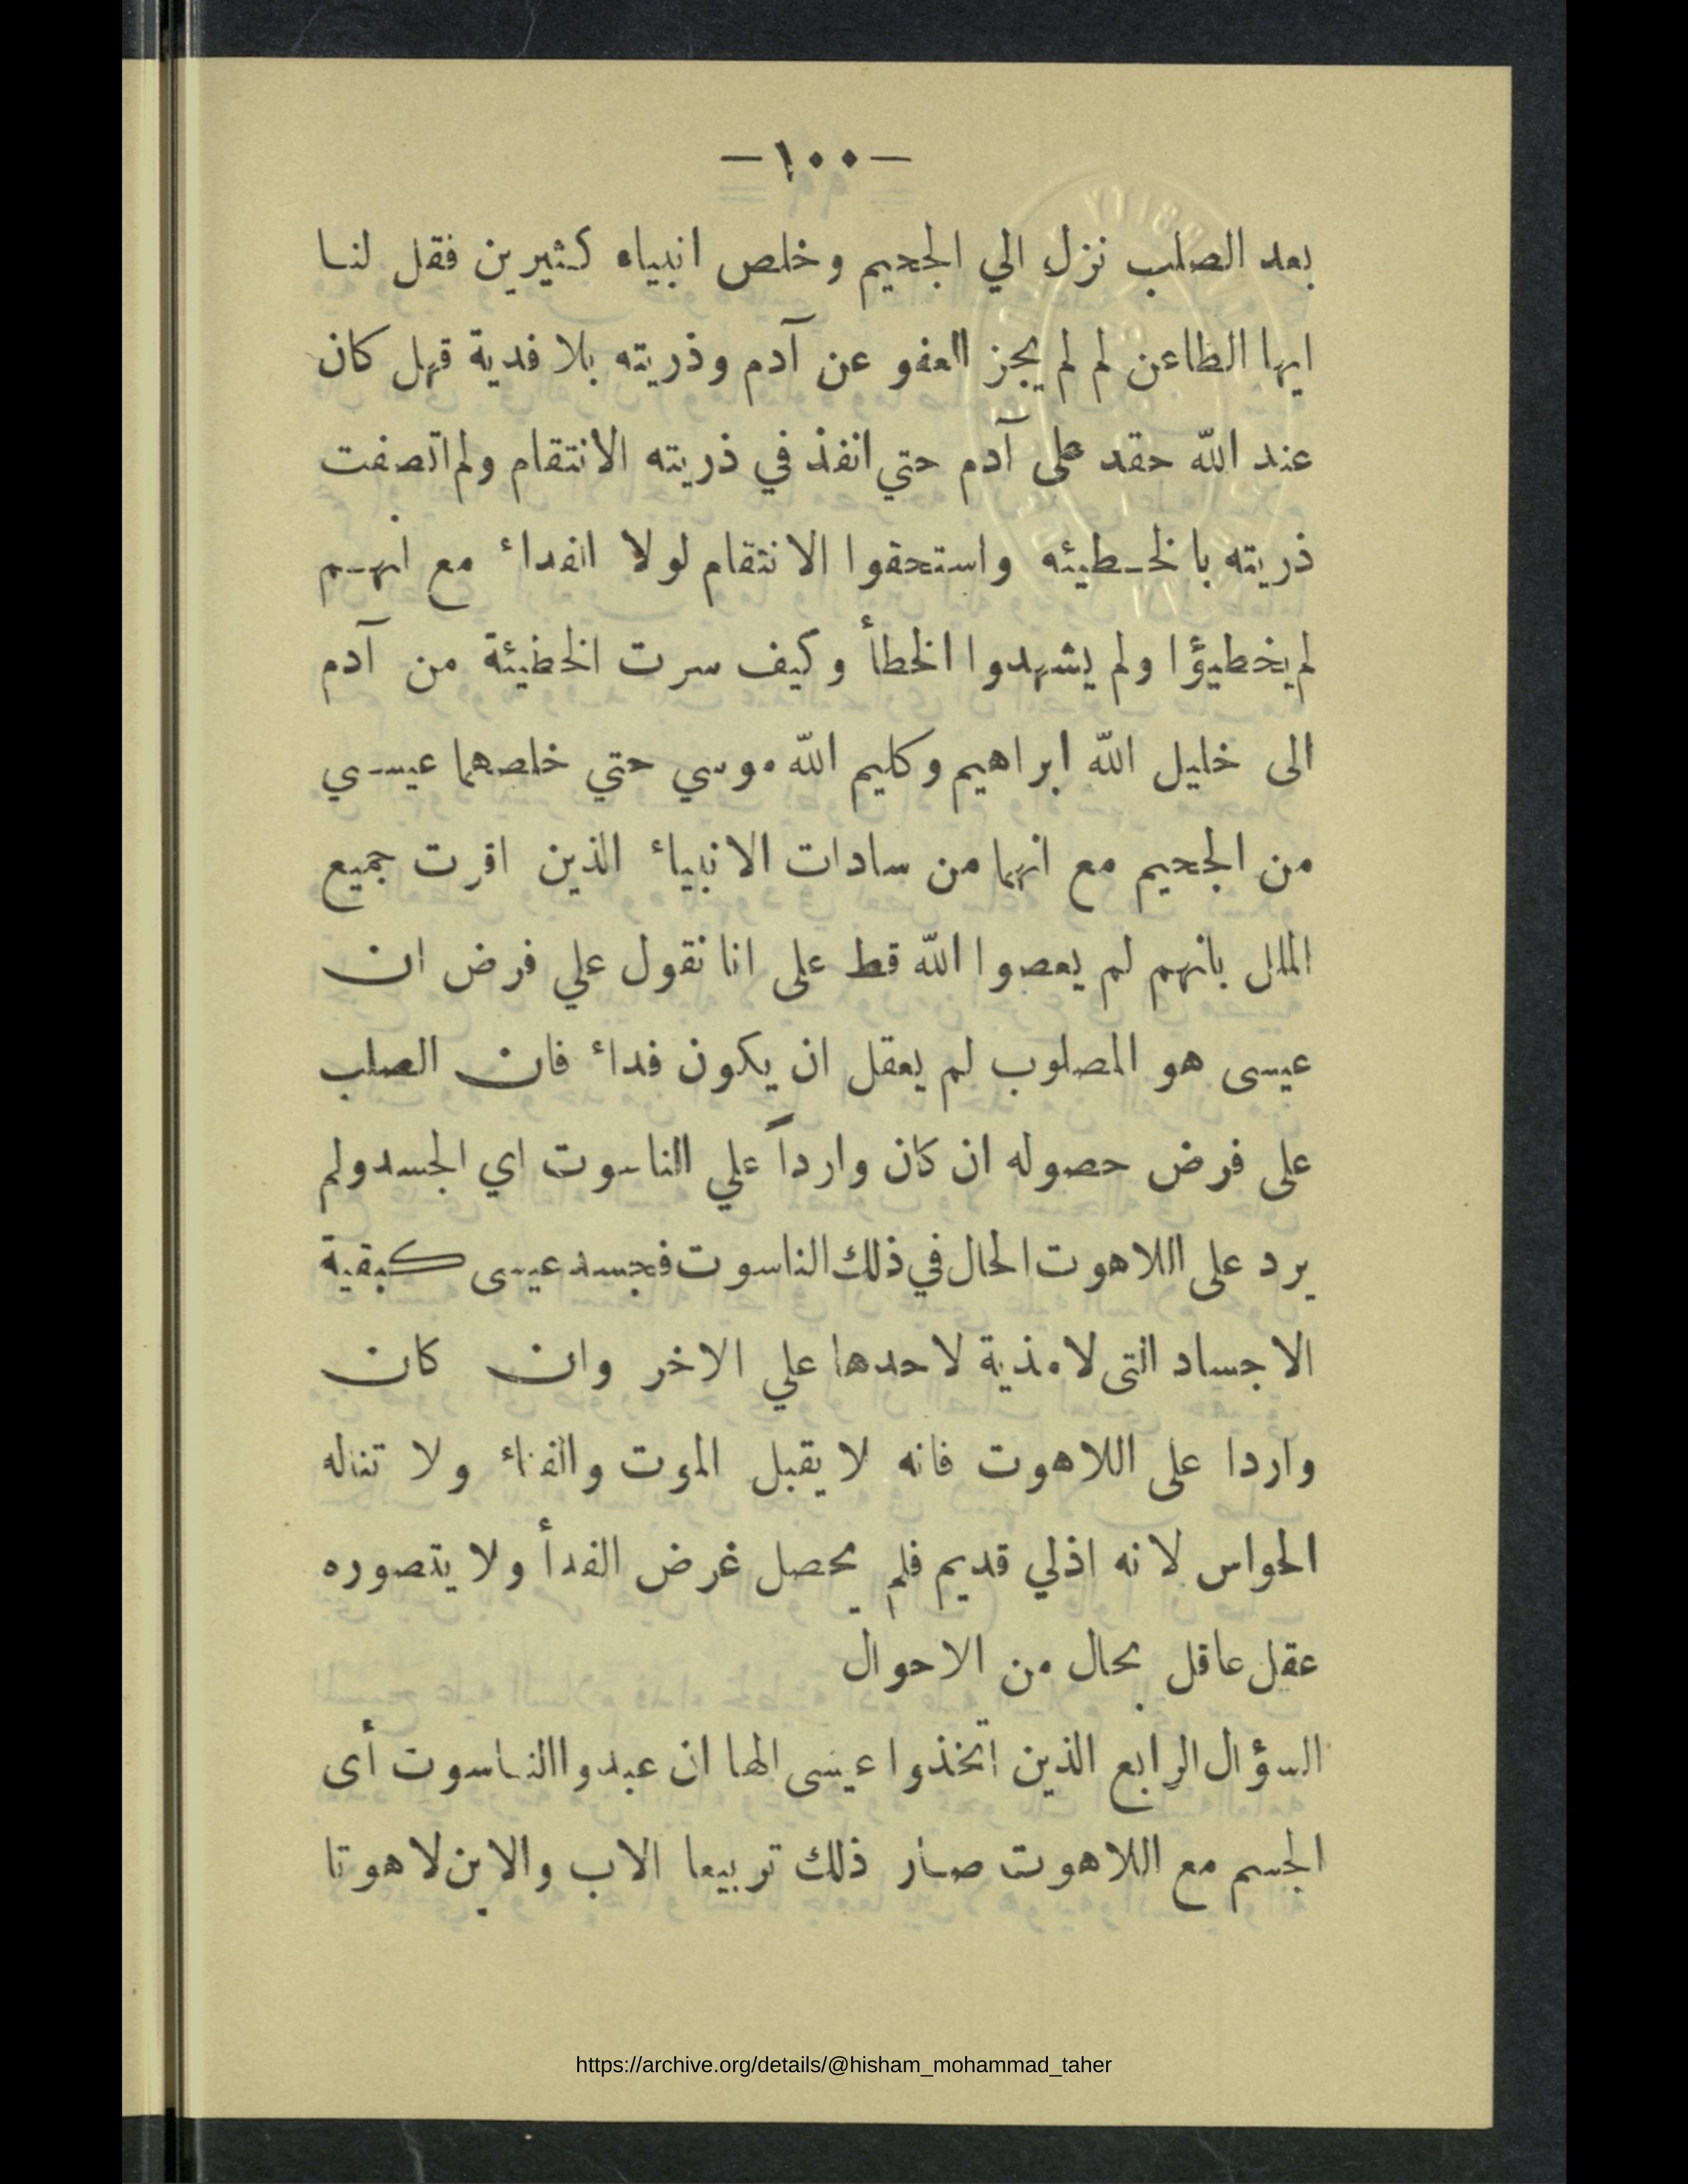 —١٠٠—
بعد الصلب نزل الي الجحيم وخلص انبياء كثيرين فقل لنا
ايها الطاعن لم لم يجز العفو عن آدم وذريته بلا فدية فهل كان
عند الله حقد على آدم حتي انفذ في ذريته الانتقام ولم اتصفت
ذريته بالخطيئه واستحقوا الانتقام لولا الفداء مع انهم
لم يخطيؤا ولم يشهدوا الخطأ وكيف سرت الخطيئة من آدم
الى خليل الله ابراهيم وكليم الله موسي حتي خلصهما عيسي
من الجحيم مع انهما من سادات الانبياء الذين اقرت جميع
الملل بانهم لم يعصوا الله قط على انا نقول علي فرض ان
عيسى هو المصلوب لم يعقل ان يكون فداء فان الصلب
على فرض حصوله ان كان وارداً علي الناسوت اي الجسد ولم
يرد على اللاهوت الحال في ذلك الناسوت فجسد عيسى كبقية
الاجساد التى لا مذية لاحدها علي الاخر وان كان
واردا على اللاهوت فانه لا يقبل الموت والفناء ولا تناله
الحواس لانه اذلي قديم فلم يحصل غرض الفدأ ولا يتصوره
عقل عاقل بحال من الاحوال
السؤال الرابع الذين اتخذوا عيسى الها ان عبدوا الناسوت أى
الجسم مع اللاهوت صار ذلك تربيعا الاب والابن لاهوتا
https://archive.org/details/@hisham_mohammad_taher